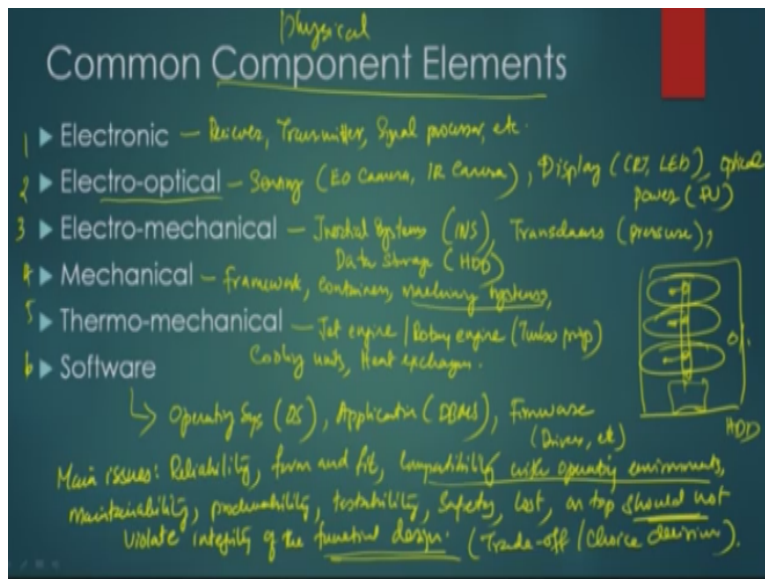 Physical
Common Component Elements
1 ▶ Electronic — Receiver, Transmitter, Signal processor, etc.
2 ▶ Electro-optical — Sensing (EO Camera, IR Camera), Display (CRT, LED), optical
power (PV)
3 ▶ Electro-mechanical — Inertial Systems (INS), Transducers (pressure),
Data Storage (HDD)
4 ▶ Mechanical — framework, containers, machining systems,
5 ▶ Thermo-mechanical — Jet engine / Rotary engine (Turbo prop)
Cooling units, Heat exchanger.
6 ▶ Software
Operating Sys (OS), Application (DBMS), Firmware
(Drivers, etc)
HDD
Main issues: Reliability, form and fit, Compatibility with operating environments,
maintainability, producibility, testability, Safety, Cost, on top should not
violate integrity of the functional design. (Trade-off / Choice decision).